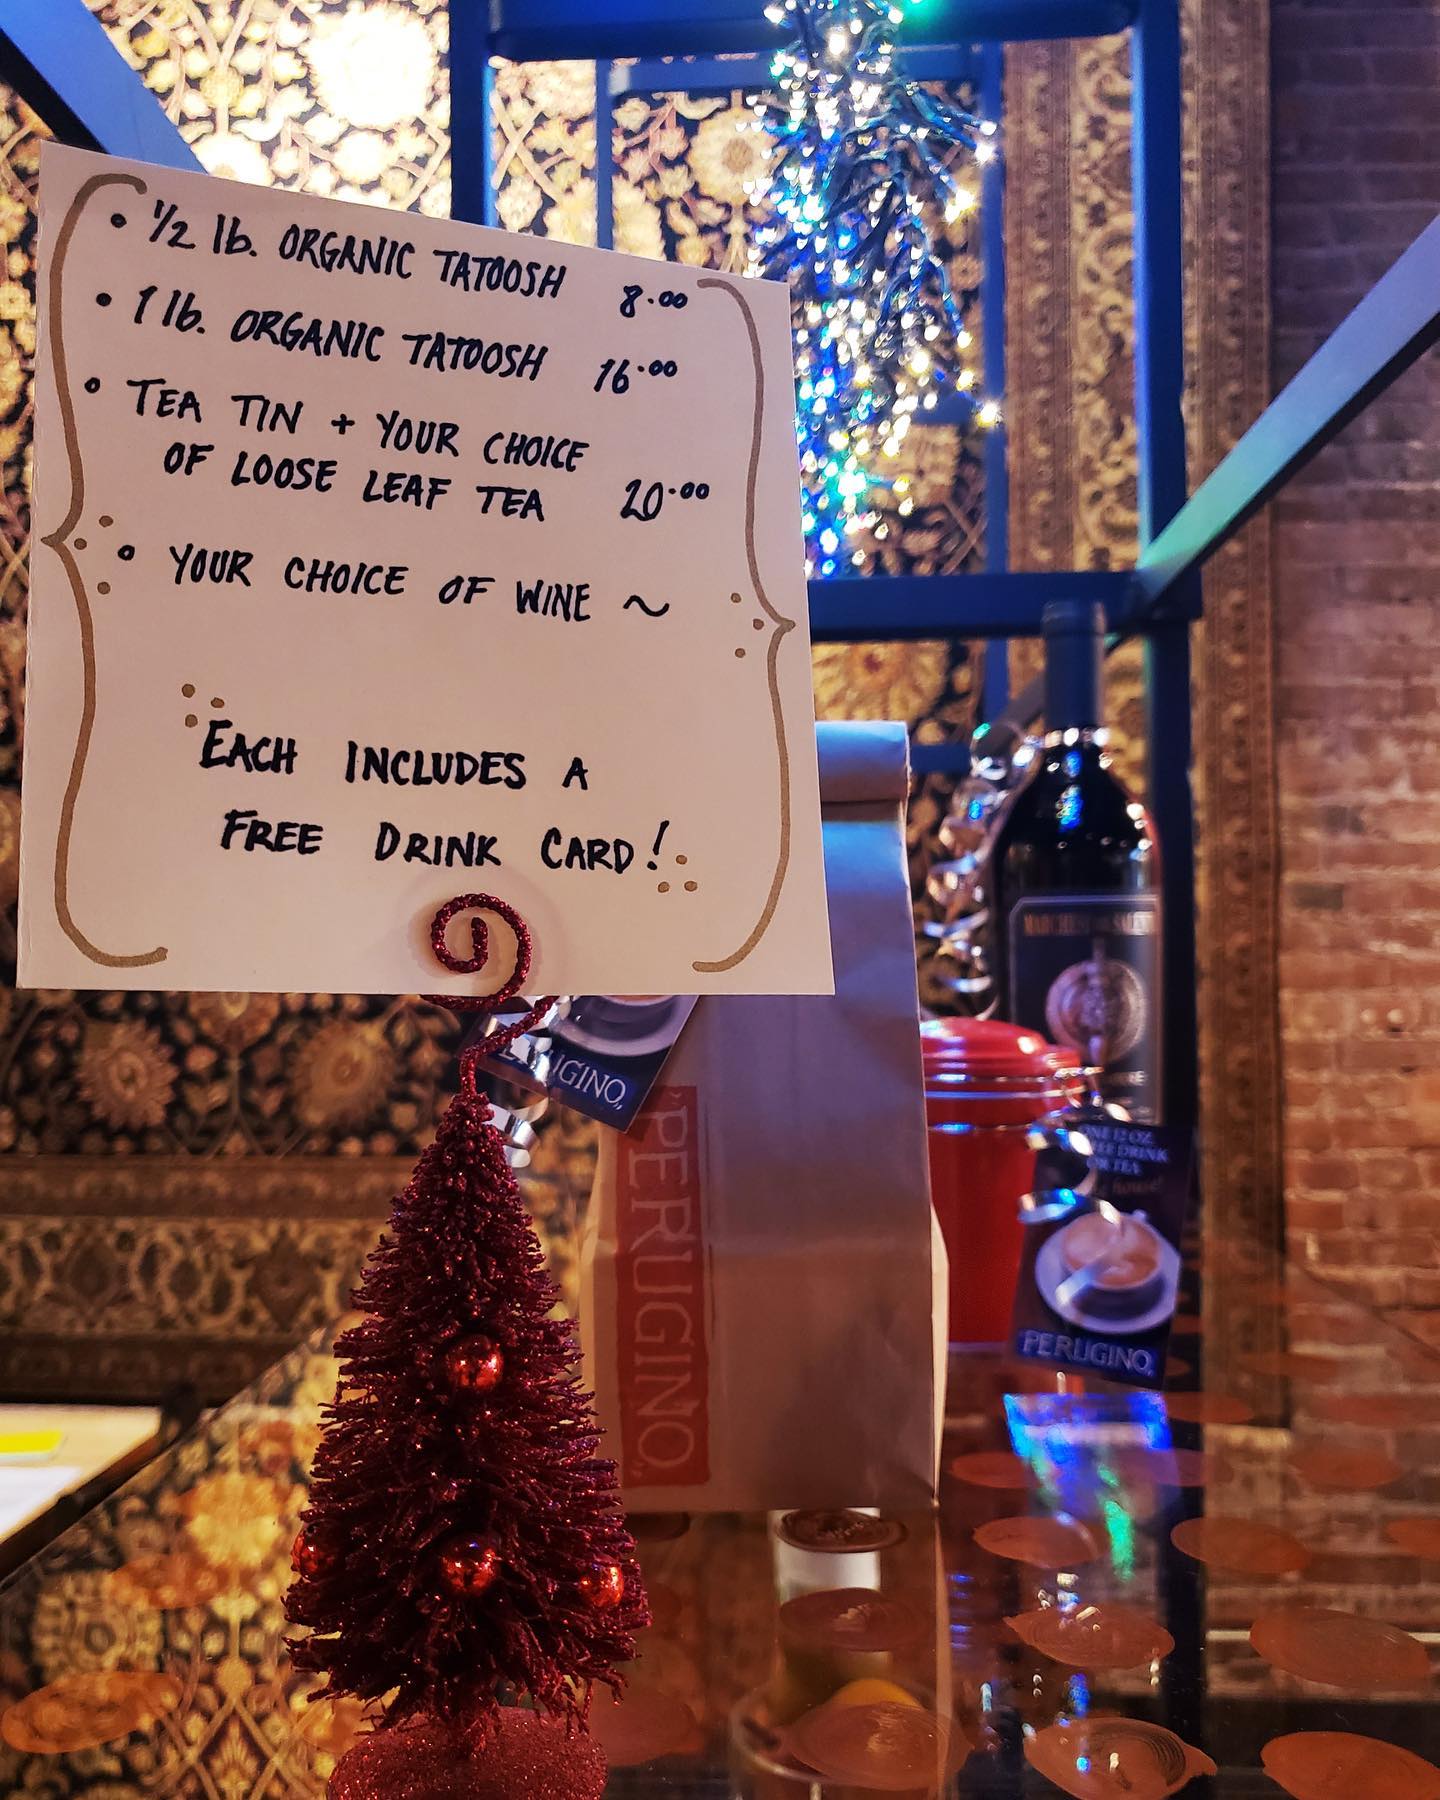 • 1/2 lb. ORGANIC TATOOSH 8.00
• 1 lb. ORGANIC TATOOSH 16.00
• TEA TIN + YOUR CHOICE
OF LOOSE LEAF TEA 20.00
• YOUR CHOICE OF WINE ~
EACH INCLUDES A
FREE DRINK CARD!
PERUGINO
ONE 12 OZ.
DRINK
OR TEA
house!
PERUGINO